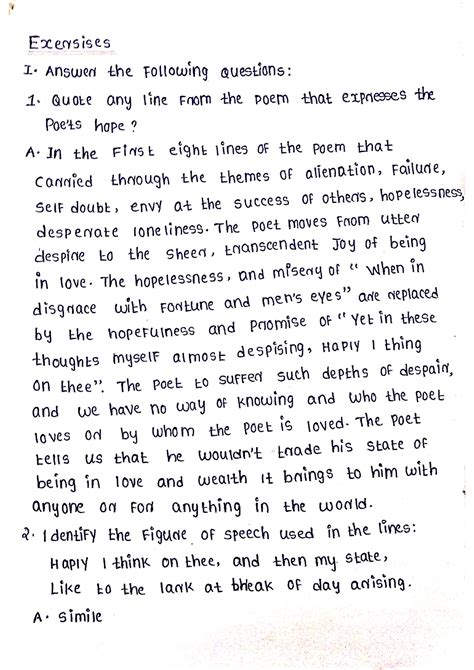 Exersises
I. Answer the Following Questions:
1. Quote any line from the Poem that expresses the
Poets hope?
A. In the First eight lines of the Poem that
Carried through the themes of alienation, Failure,
self doubt, envy at the success of others, hopelessness,
desperate loneliness. The Poet moves from utter
despire to the sheer, transcendent Joy of being
in love. The hopelessness, and misery of "When in
disgrace with Fortune and men's eyes" are replaced
by the hopefulness and Promise of "Yet in these
thoughts myself almost despising, Haply I thing
on thee". The Poet to suffer such depths of despair,
and we have no way of knowing and who the Poet
loves or by whom the Poet is loved. The Poet
tells us that he wouldn't trade his state of
being in love and wealth it brings to him with
anyone or for anything in the world.
2. Identify the Figure of speech used in the lines:
Haply I think on thee, and then my state,
Like to the lark at break of day arising.
A. Simile